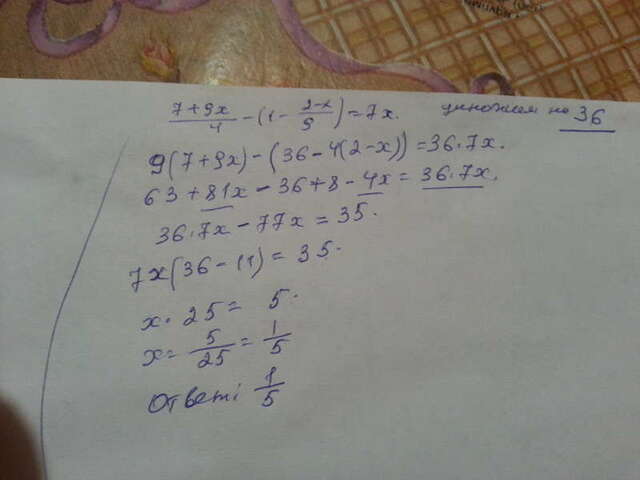 (7+9x)/4 - (1 - (2-x)/9) = 7x. умножим на 36
9(7+9x)-(36-4(2-x))=36·7x.
63+81x-36+8-4x=36·7x.
36·7x-77x=35.
7x(36-11)=35.
x·25=5.
x=5/25=1/5
Ответ: 1/5